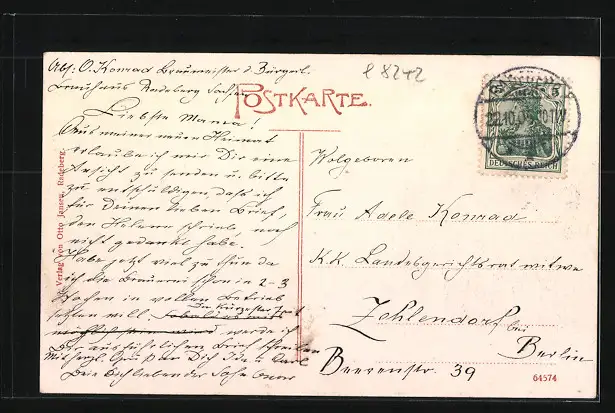 Abs: O. Konrad Braumeister d. Bürgerl.
Brauhaus Radeberg Sachsen
l 8242
POSTKARTE.
Liebste Mama!
Aus meiner neuen Heimat
erlaube ich mir Dir eine
Ansicht zu senden u. bitte
zu entschuldigen, daß ich
für Deinen lieben Brief,
den Helene schrieb, noch
nicht gedankt habe.
Habe jetzt viel zu thun da
ich die Brauerei schon in 2-3
Wochen in vollen Betrieb
setzen will. In kürzester Zeit
werde ich
Dir ausführlichen Brief schreiben
Mit herzl. Gruß an Dich
Dein Dich liebender Sohn
Verlag von Otto Jansen, Radeberg.
Wolgeboren
Frau Adele Konrad
K.K. Landesgerichtsratwitwe
Zehlendorf bei
Berlin
Beerenstr. 39
64574
5
DEUTSCHES REICH
22.10.